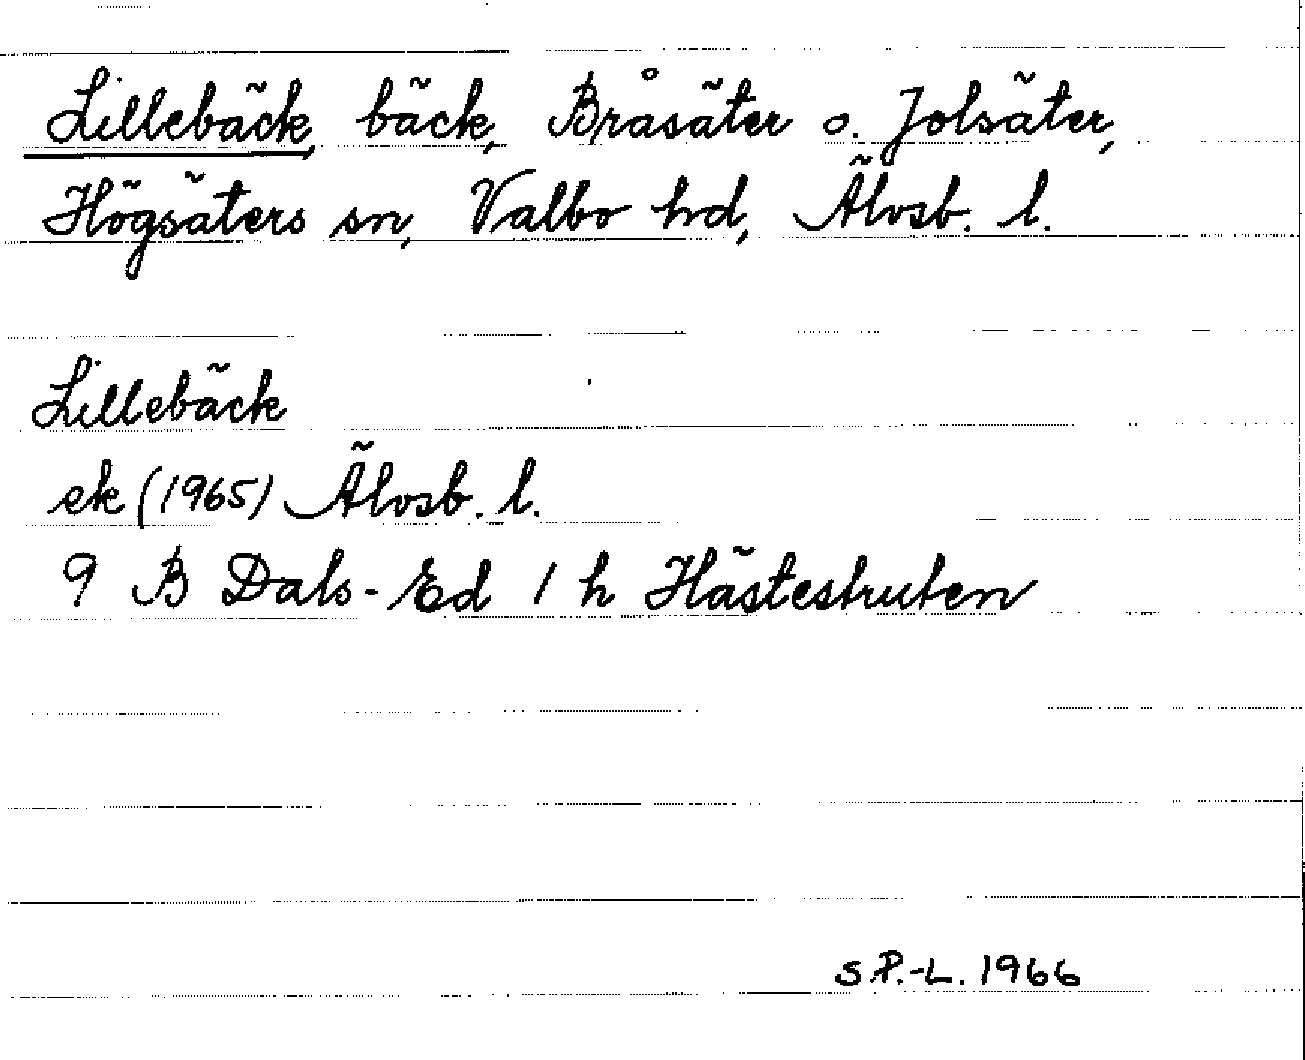 Lillebäck, bäck, Bråsäter o. Jolsäter,
Högsäters sn, Valbo hd, Älvsb. l.
Lillebäck
ek (1965) Älvsb. l.
9 B Dals-Ed 1 h Hästestruten
S P.-L. 1966